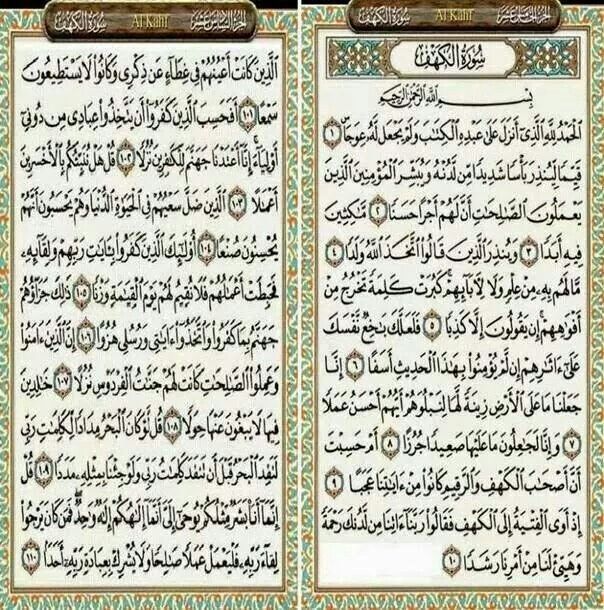 سُورَةُ الكَهْفِ Al Kahf الجُزْءُ الخَامِسَ عَشَرَ
سُورَةُ الكَهْفِ
بِسْمِ اللَّهِ الرَّحْمَٰنِ الرَّحِيمِ
الْحَمْدُ لِلَّهِ الَّذِي أَنزَلَ عَلَىٰ عَبْدِهِ الْكِتَٰبَ وَلَمْ يَجْعَل لَّهُۥ عِوَجَا ۜ ١
قَيِّمًا لِّيُنذِرَ بَأْسًا شَدِيدًا مِّن لَّدُنْهُ وَيُبَشِّرَ الْمُؤْمِنِينَ الَّذِينَ
يَعْمَلُونَ الصَّٰلِحَٰتِ أَنَّ لَهُمْ أَجْرًا حَسَنًا ٢ مَّٰكِثِينَ
فِيهِ أَبَدًا ٣ وَيُنذِرَ الَّذِينَ قَالُوا اتَّخَذَ اللَّهُ وَلَدًا ٤
مَّا لَهُم بِهِۦ مِنْ عِلْمٍ وَلَا لِءَابَآئِهِمْ ۚ كَبُرَتْ كَلِمَةً تَخْرُجُ مِنْ
أَفْوَٰهِهِمْ ۚ إِن يَقُولُونَ إِلَّا كَذِبًا ٥ فَلَعَلَّكَ بَٰخِعٌ نَّفْسَكَ
عَلَىٰٓ ءَاثَٰرِهِمْ إِن لَّمْ يُؤْمِنُوا بِهَٰذَا الْحَدِيثِ أَسَفًا ٦ إِنَّا
جَعَلْنَا مَا عَلَى الْأَرْضِ زِينَةً لَّهَا لِنَبْلُوَهُمْ أَيُّهُمْ أَحْسَنُ عَمَلًا
٧ وَإِنَّا لَجَٰعِلُونَ مَا عَلَيْهَا صَعِيدًا جُرُزًا ٨ أَمْ حَسِبْتَ
أَنَّ أَصْحَٰبَ الْكَهْفِ وَالرَّقِيمِ كَانُوا مِنْ ءَايَٰتِنَا عَجَبًا ٩
إِذْ أَوَى الْفِتْيَةُ إِلَى الْكَهْفِ فَقَالُوا رَبَّنَآ ءَاتِنَا مِن لَّدُنكَ رَحْمَةً
وَهَيِّئْ لَنَا مِنْ أَمْرِنَا رَشَدًا ١٠
سُورَةُ الكَهْفِ Al Kahf الجُزْءُ السَّادِسَ عَشَرَ
الَّذِينَ كَانَتْ أَعْيُنُهُمْ فِي غِطَآءٍ عَن ذِكْرِي وَكَانُوا لَا يَسْتَطِيعُونَ
سَمْعًا ١٠١ أَفَحَسِبَ الَّذِينَ كَفَرُوٓا أَن يَتَّخِذُوا عِبَادِي مِن دُونِيٓ
أَوْلِيَآءَ ۚ إِنَّآ أَعْتَدْنَا جَهَنَّمَ لِلْكَٰفِرِينَ نُزُلًا ١٠٢ قُلْ هَلْ نُنَبِّئُكُم بِالْأَخْسَرِينَ
أَعْمَٰلًا ١٠٣ الَّذِينَ ضَلَّ سَعْيُهُمْ فِي الْحَيَوٰةِ الدُّنْيَا وَهُمْ يَحْسَبُونَ أَنَّهُمْ
يُحْسِنُونَ صُنْعًا ١٠٤ أُولَٰٓئِكَ الَّذِينَ كَفَرُوا بِـَٔايَٰتِ رَبِّهِمْ وَلِقَآئِهِۦ
فَحَبِطَتْ أَعْمَٰلُهُمْ فَلَا نُقِيمُ لَهُمْ يَوْمَ الْقِيَٰمَةِ وَزْنًا ١٠٥ ذَٰلِكَ جَزَآؤُهُمْ
جَهَنَّمُ بِمَا كَفَرُوا وَاتَّخَذُوٓا ءَايَٰتِي وَرُسُلِي هُزُوًا ١٠٦ إِنَّ الَّذِينَ ءَامَنُوا
وَعَمِلُوا الصَّٰلِحَٰتِ كَانَتْ لَهُمْ جَنَّٰتُ الْفِرْدَوْسِ نُزُلًا ١٠٧ خَٰلِدِينَ
فِيهَا لَا يَبْغُونَ عَنْهَا حِوَلًا ١٠٨ قُل لَّوْ كَانَ الْبَحْرُ مِدَادًا لِّكَلِمَٰتِ رَبِّي
لَنَفِدَ الْبَحْرُ قَبْلَ أَن تَنفَدَ كَلِمَٰتُ رَبِّي وَلَوْ جِئْنَا بِمِثْلِهِۦ مَدَدًا ١٠٩ قُلْ
إِنَّمَآ أَنَا۠ بَشَرٌ مِّثْلُكُمْ يُوحَىٰٓ إِلَيَّ أَنَّمَآ إِلَٰهُكُمْ إِلَٰهٌ وَٰحِدٌ ۖ فَمَن كَانَ يَرْجُوا
لِقَآءَ رَبِّهِۦ فَلْيَعْمَلْ عَمَلًا صَٰلِحًا وَلَا يُشْرِكْ بِعِبَادَةِ رَبِّهِۦٓ أَحَدًۢا ١١٠